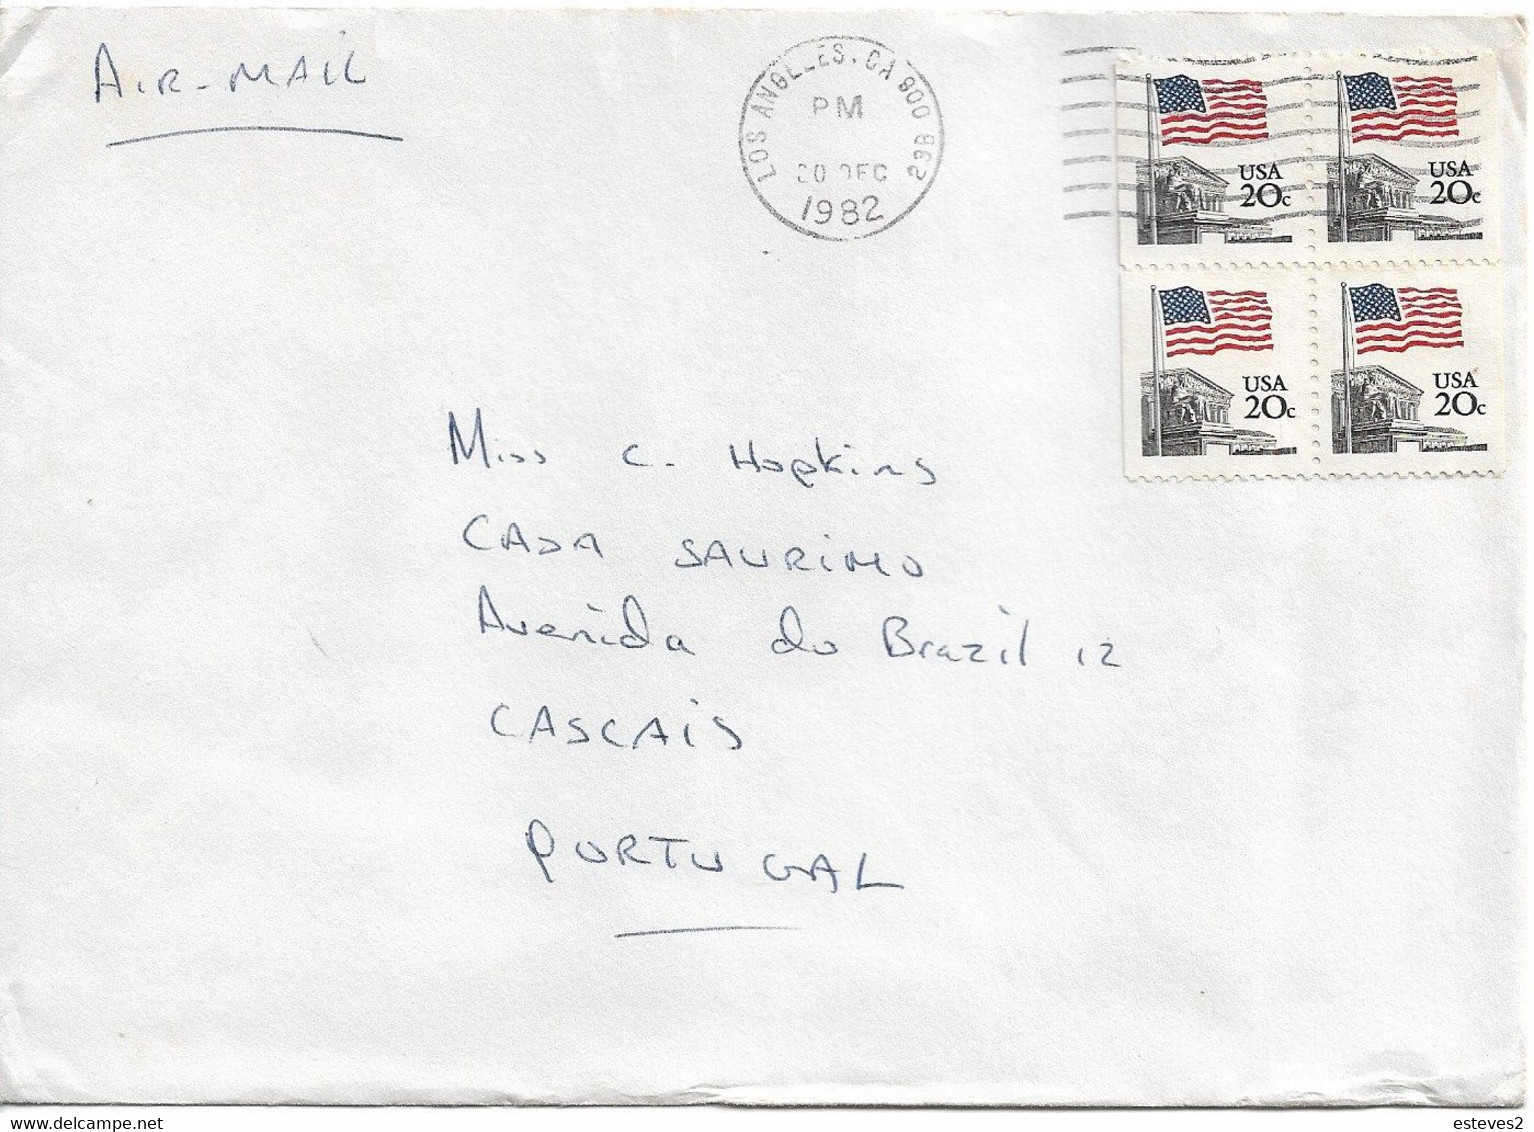 AIR-MAIL
LOS ANGELES, CA 900 29B
PM
20 DEC
1982
USA
20c
USA
20c
USA
20c
USA
20c
Miss C. Hopkins
CASA SAURIMO
Avenida do Brazil 12
CASCAIS
PORTUGAL
www.delcampe.net
esteves2